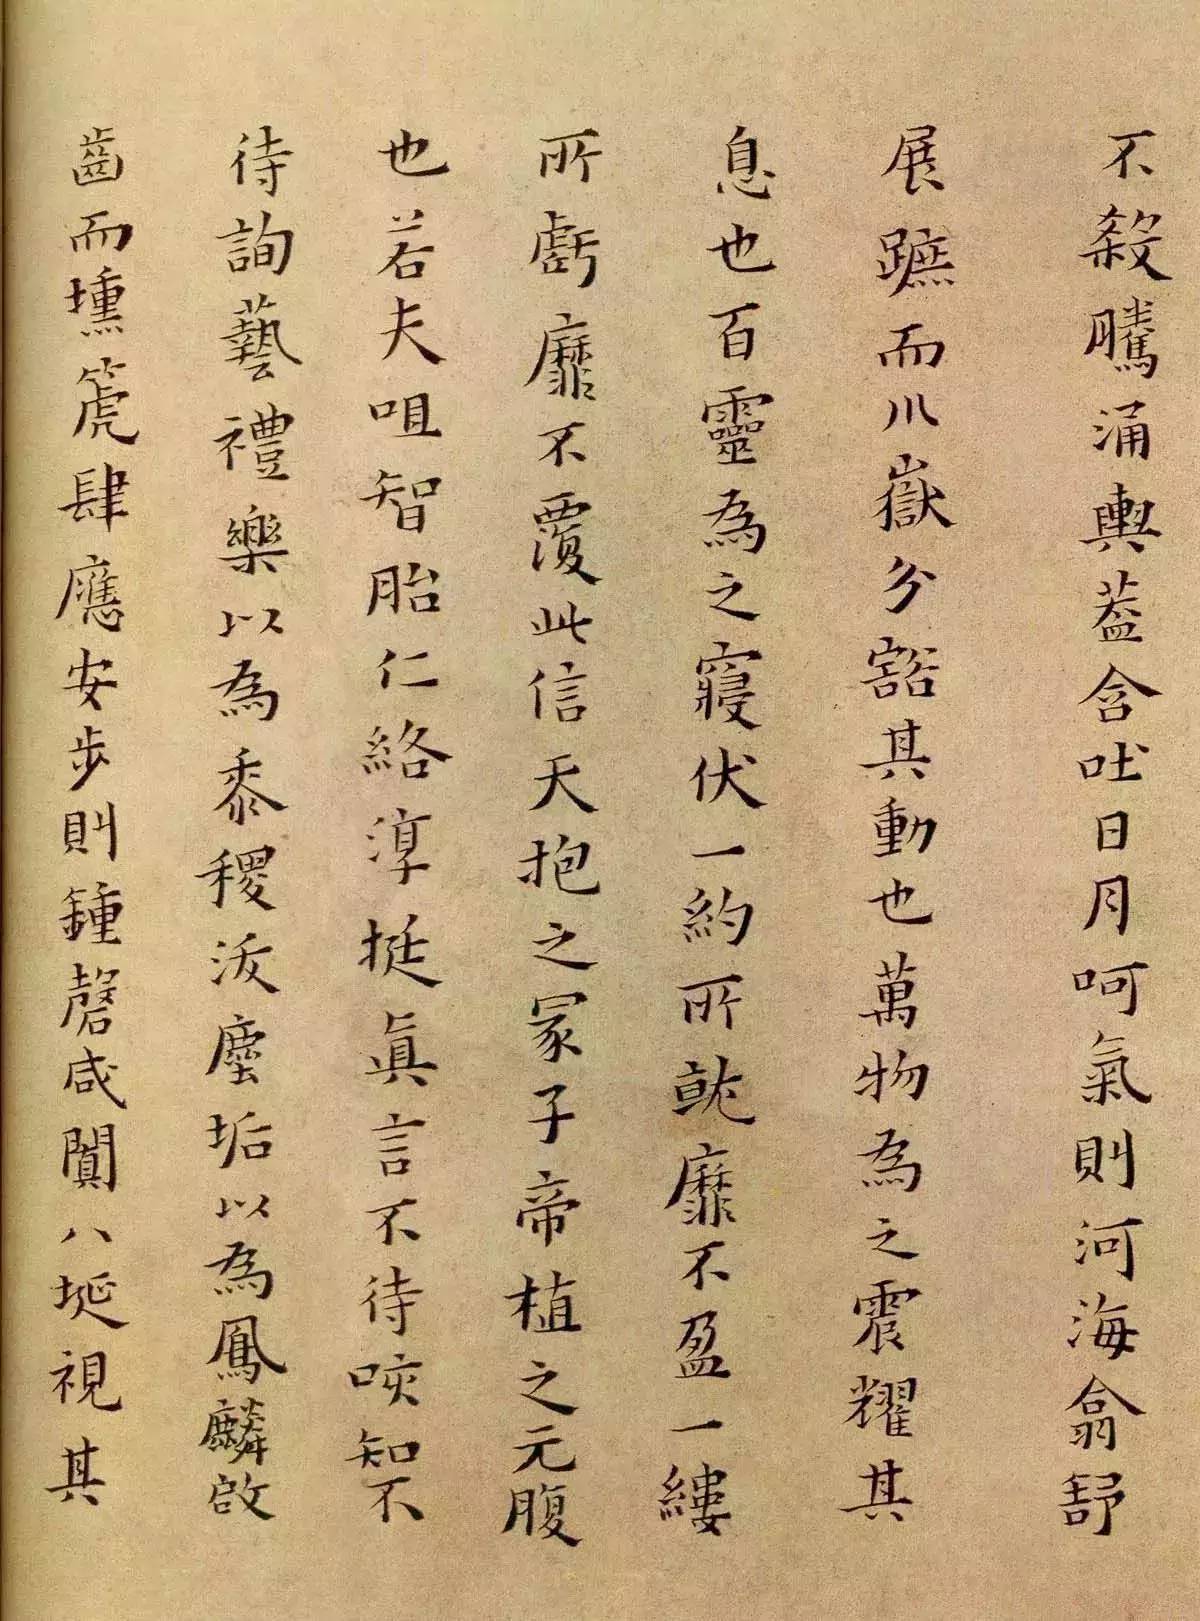 不殺騰涌輿葢含吐日月呵氣則河海翕舒
展蹠而川嶽分豁其動也萬物為之震耀其
息也百靈為之寢伏一約所就靡不盈一縷
所虧靡不覆此信天抱之冢子帝植之元腹
也若夫咀智胎仁絡淳挺真言不待咳知不
待詢藝禮樂以為黍稷洿塵垢以為鳳麟啟
齒而壎篪肆應安步則鍾磬咸闐八埏視其